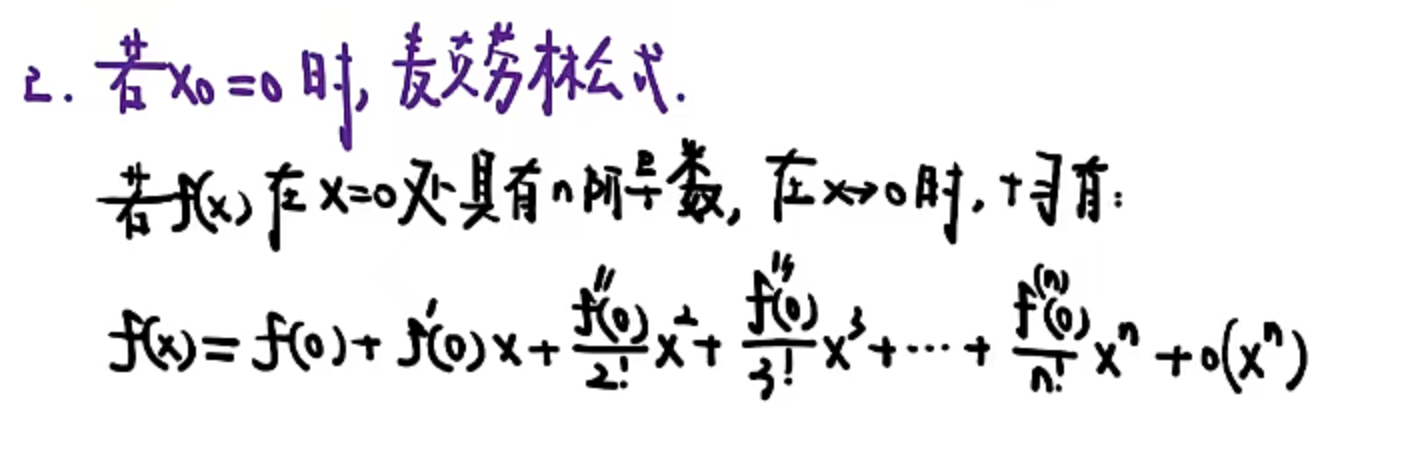 2. 若x₀=0时, 麦克劳林公式.
若f(x)在x=0处具有n阶导数, 在x→0时, 才有:
f(x)=f(0)+f'(0)x+f''(0)/2! x²+f'''(0)/3! x³+⋯+f⁽ⁿ⁾(0)/n! xⁿ+o(xⁿ)